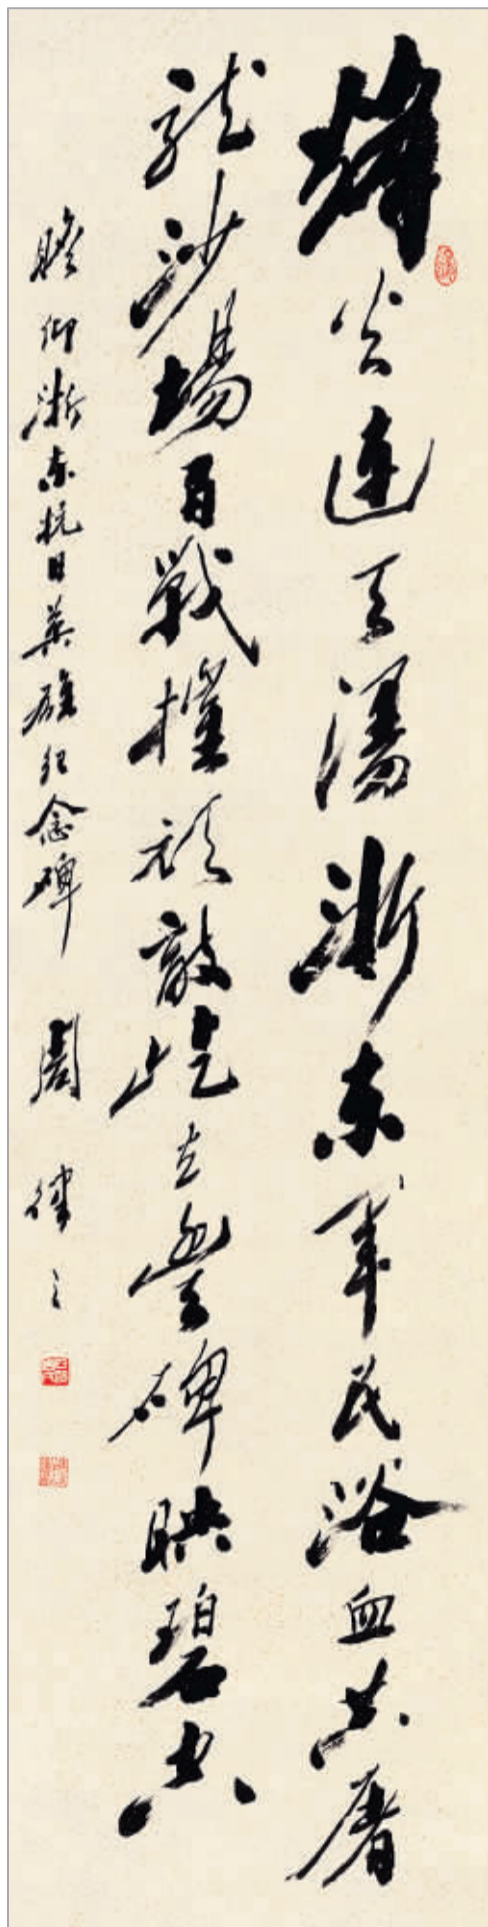 烽火連天漫浙东军民浴血共屠
龍沙場百戰摧頑敵屹立豐碑映碧空
瞻仰浙东抗日英雄纪念碑 周律之